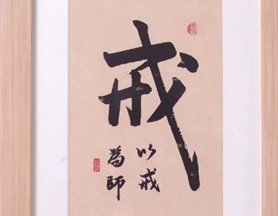 戒
以戒
為師